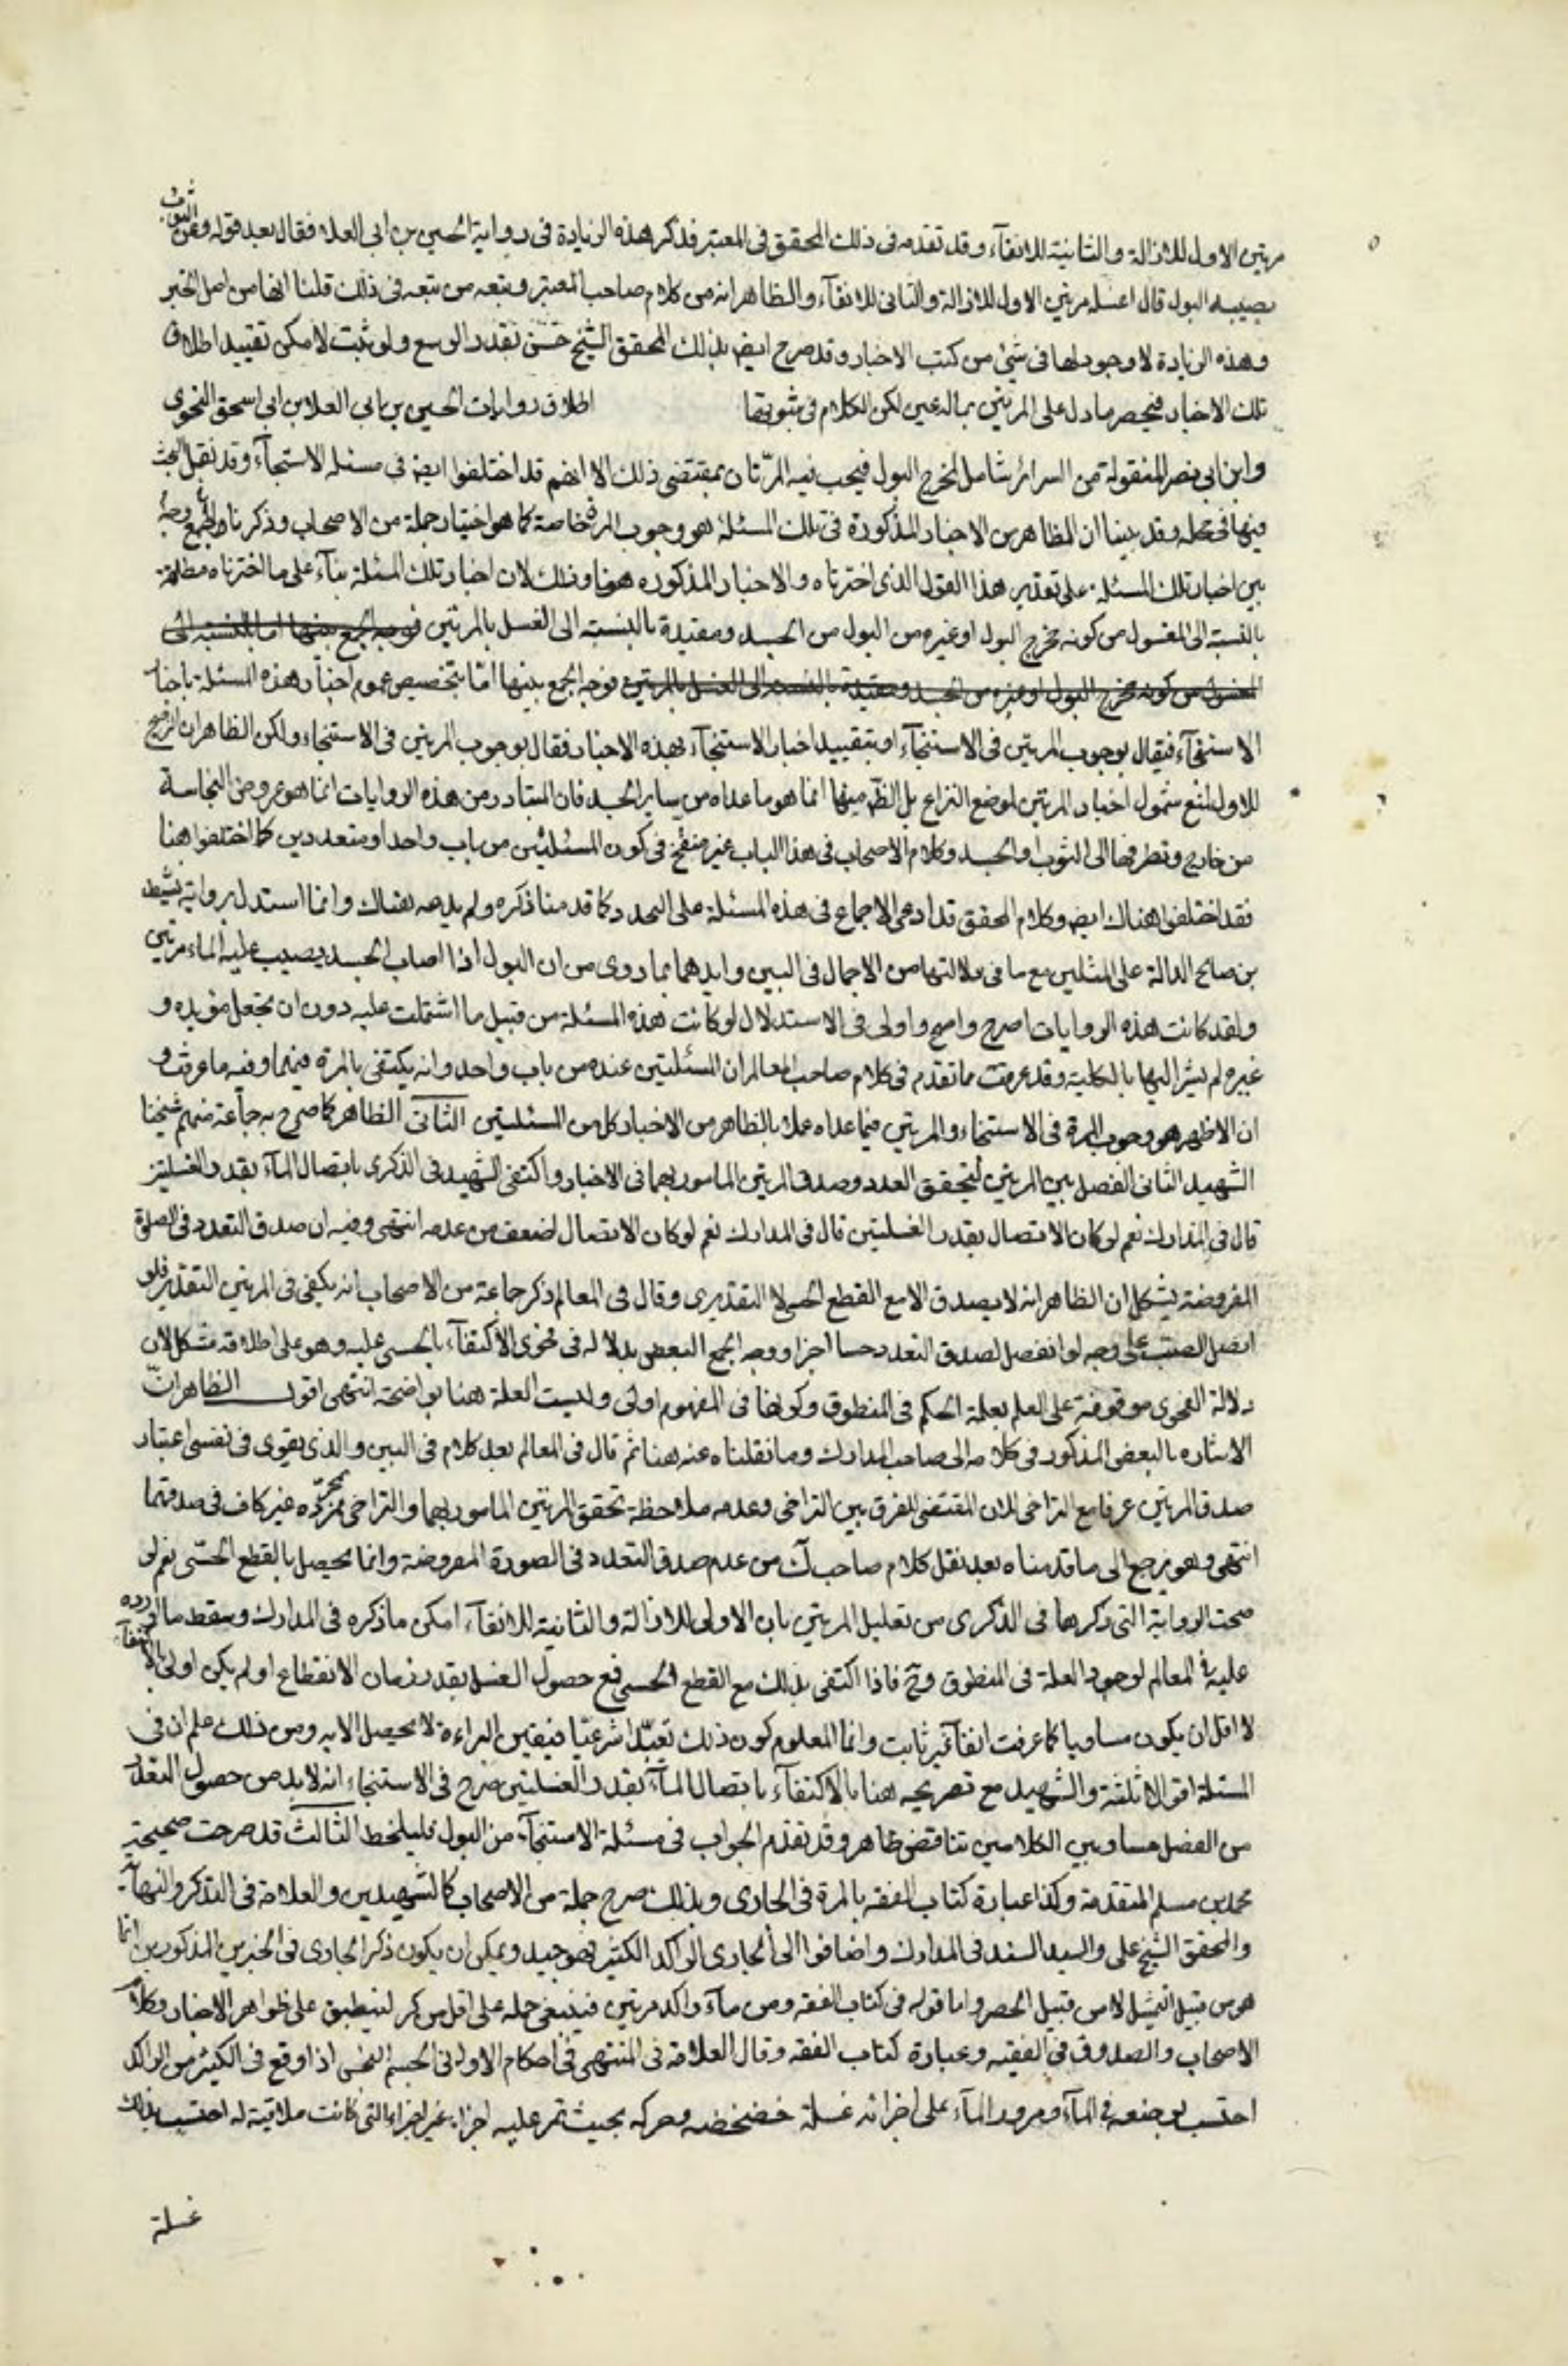 مرتين الاولى للازالة والثانية للانقآء وقد تقدمه فى ذلك المحقق فى المعتبر فذكر هذه الزيادة فى رواية الحسين بن ابى العلاء فقال بعد قوله وعن الثوب
يصيبه البول قال اغسله مرتين الاول للازالة والثانى للانقآء والظاهر انه من كلام صاحب المعتبر وتبعه من تبعه فى ذلك قلنا انها من اصل الخبر
وهذه الزيادة لا وجود لها فى شئ من كتب الاخبار وقد صرح ايضا بذلك المحقق الشيخ حسن بقدر الوسع ولو ثبت لامكن تقييد اطلاق
تلك الاخبار فيخص ما دل على المرتين بماله عين لكن الكلام فى ثبوتها اطلاق روايات الحسين بن ابى العلا بن ابى اسحق النحوى
وابن ابى نصر المنقولة من السرائر شامل لمخرج البول فيجب فيه المرّتان بمقتضى ذلك الا انهم قد اختلفوا ايضا فى مسئلة الاستنجآء وقد نقل البحث
فيها فى محله وقد بينا ان الظاهر من الاخبار المذكورة فى تلك المسئلة هو وجوب المرة خاصة كما هو اختيار جملة من الاصحاب وذكرنا والجمع وجه
بين اخبار تلك المسئلة على تقدير هذا القول الذى اخترناه والاخبار المذكوره هنا وذلك لان اخبار تلك المسئلة بناء على ما اخترناه مطلقة
بالنسبة الى المغسول من كونه مخرج البول او غيره من البول من الجسد ومقيدة بالنسبة الى الغسل بالمرتين فوجه الجمع بينهما اما بالنسبة الى
المغسول من كونه مخرج البول او غيره من الجسد ومقيدة بالنسبة الى الغسل بالمرتين فوجه الجمع بينها اما بتخصيص عموم اخبار هذه المسئلة باخبار
الاستنجآء فيقال بوجوب المرتين فى الاستنجآء او بتقييد اخبار الاستنجآء بهذه الاخبار فقال بوجوب المرتين فى الاستنجاء ولكن الظاهر ان الترجيح
للاول لمنع شمول اخبار المرتين لموضع النزاع بل الظ منها انما هو ما عداه من ساير الجسد فان المتبادر من هذه الروايات انما هو عروض النجاسة
من خارج وتطرقها الى الثوب او الجسد وكلام الاصحاب فى هذا الباب غير منقح فى كون المسئلتين من باب واحد او متعددين كما اختلفوا هنا
فقد اختلفوا هناك ايضا وكلام المحقق قد ادعى الاجماع فى هذه المسئلة على التعدد كما قدمنا ذكره ولم يدعه هناك وانما استدل برواية نشيط
بن صالح الدالة على المثلين مع ما فى دلالتها من الاجمال فى البين وايدها بما روى من ان البول اذا اصاب الجسد يصب عليه الماء مرتين
ولقد كانت هذه الروايات اصرح واصح واولى فى الاستدلال لو كانت هذه المسئلة من قبيل ما اشتملت عليه دون ان تجعل مؤيده و
غيره لم يشر اليها بالكلية وقد عرفت مما تقدم فى كلام صاحب المعالم ان المسئلتين عنده من باب واحد وانه يكتفى بالمرة فيهما وفيه ما عرفت و
ان الاظهر هو وجوب المرة فى الاستنجاء والمرتين فيما عداه عملا بالظاهر من الاخبار كل من المسئلتين الثانى الظاهر كما صرح به جماعة منهم شيخنا
الشهيد الثانى الفصل بين المرتين ليتحقق العدد وصدق المرتين المامور بهما فى الاخبار واكتفى الشهيد فى الذكرى باتصال المآء بقدر الغسلتين
قال فى المدارك نعم لو كان الاتصال بقدر الغسلتين قال فى المدارك نعم لو كان الاتصال لضعف من عدمه انتهى وفيه ان صدق التعدد فى الصورة
المفروضة يشكل ان الظاهر انه لا يصدق الا مع القطع الحسى لا التقديرى وقال فى المعالم ذكر جماعة من الاصحاب انه يكفى فى المرتين التقدير فلو
اتصل الصب على وجه لو انفصل لصدق التعدد حسا اجزا ووجه الجمع البعض بدلاله فى فحوى الاكتفاء بالحسى عليه وهو على اطلاقه مشكل لان
دلالة الفحوى موقوفة على العلم بعلة الحكم فى المنطوق وكونها فى المفهوم اولى وليست العلة هنا بواضحة انتهى اقول الظاهر ان
الاشاره بالبعض المذكور فى كلامه الى صاحب المدارك وما نقلناه عنه هنا ثم قال فى المعالم بعد كلام فى البين والذى يقوى فى نفسى اعتبار
صدق المرتين عرفا مع التراخى لان المقتضى للفرق بين التراخى وعدمه ملاحظة تحقق المرتين المامور بهما والتراخى بمجرّده غير كاف فى صدقهما
انتهى وهو يرجع الى ما قدمناه بعد نقل كلام صاحب ك من عدم صدق التعدد فى الصورة المفروضة وانما يحصل بالقطع الحسى نعم لو
صحت الرواية التى ذكرها فى الذكرى من تعليل المرتين بان الاولى للازالة والثانية للانقآء امكن ما ذكره فى المدارك وسقط ما اورده
عليه فى المعالم لوجود العلة فى المنطوق وح فاذا اكتفى بذلك مع القطع الحسى فمع حصول الغسل بقدر زمان الانقطاع او لم يكن اولى بالاكتفآء
لا اقل ان يكون مساويا كما عرفت انفا غير ثابت وانما المعلوم كون ذلك تعبّدا شرعيّا فيقين البراءة لا يحصل الا به ومن ذلك علم ان فى
المسئلة اقوالا ثلثة والشهيد مع تصريحه هنا بالاكتفآء باتصال المآء بقدر الغسلتين صرح فى الاستنجاء انه لا بد من حصول التعدد
من الفصل مساو بين الكلامين تناقض ظاهر وقد تقدم الجواب فى مسئلة الاستنجآء من البول فليلحظ الثالث قد صرحت صحيحة
محمد بن مسلم المتقدمة وكذا عبارة كتاب الفقه بالمرة فى الجارى وبذلك صرح جملة من الاصحاب كالشهيدين والعلامة فى التذكره والنهايه
والمحقق الشيخ على والسيد السند فى المدارك واضافوا الى الجارى الراكد الكثير وهو جيد ويمكن ان يكون ذكر الجارى فى الخبرين المذكورين انما
هو من قبيل التمثيل لا من قبيل الحصر واما قوله فى كتاب الفقه ومن مآء راكد مرتين فينبغى حمله على اقل من كر لينطبق على ظواهر الاخبار وكلام
الاصحاب والصدوق فى الفقيه وعبارة كتاب الفقه وقال العلامة فى المنتهى فى احكام الاوانى الجسم النجس اذا وقع فى الكثير من الراكد
احتسب بوضعه فى المآء ومرور المآء على اجزائه غسلة خضخضه وحركه بحيث تمر عليه اجزاء غير اجزاءه التى كانت ملاقية له احتسب بذلك
غسلة